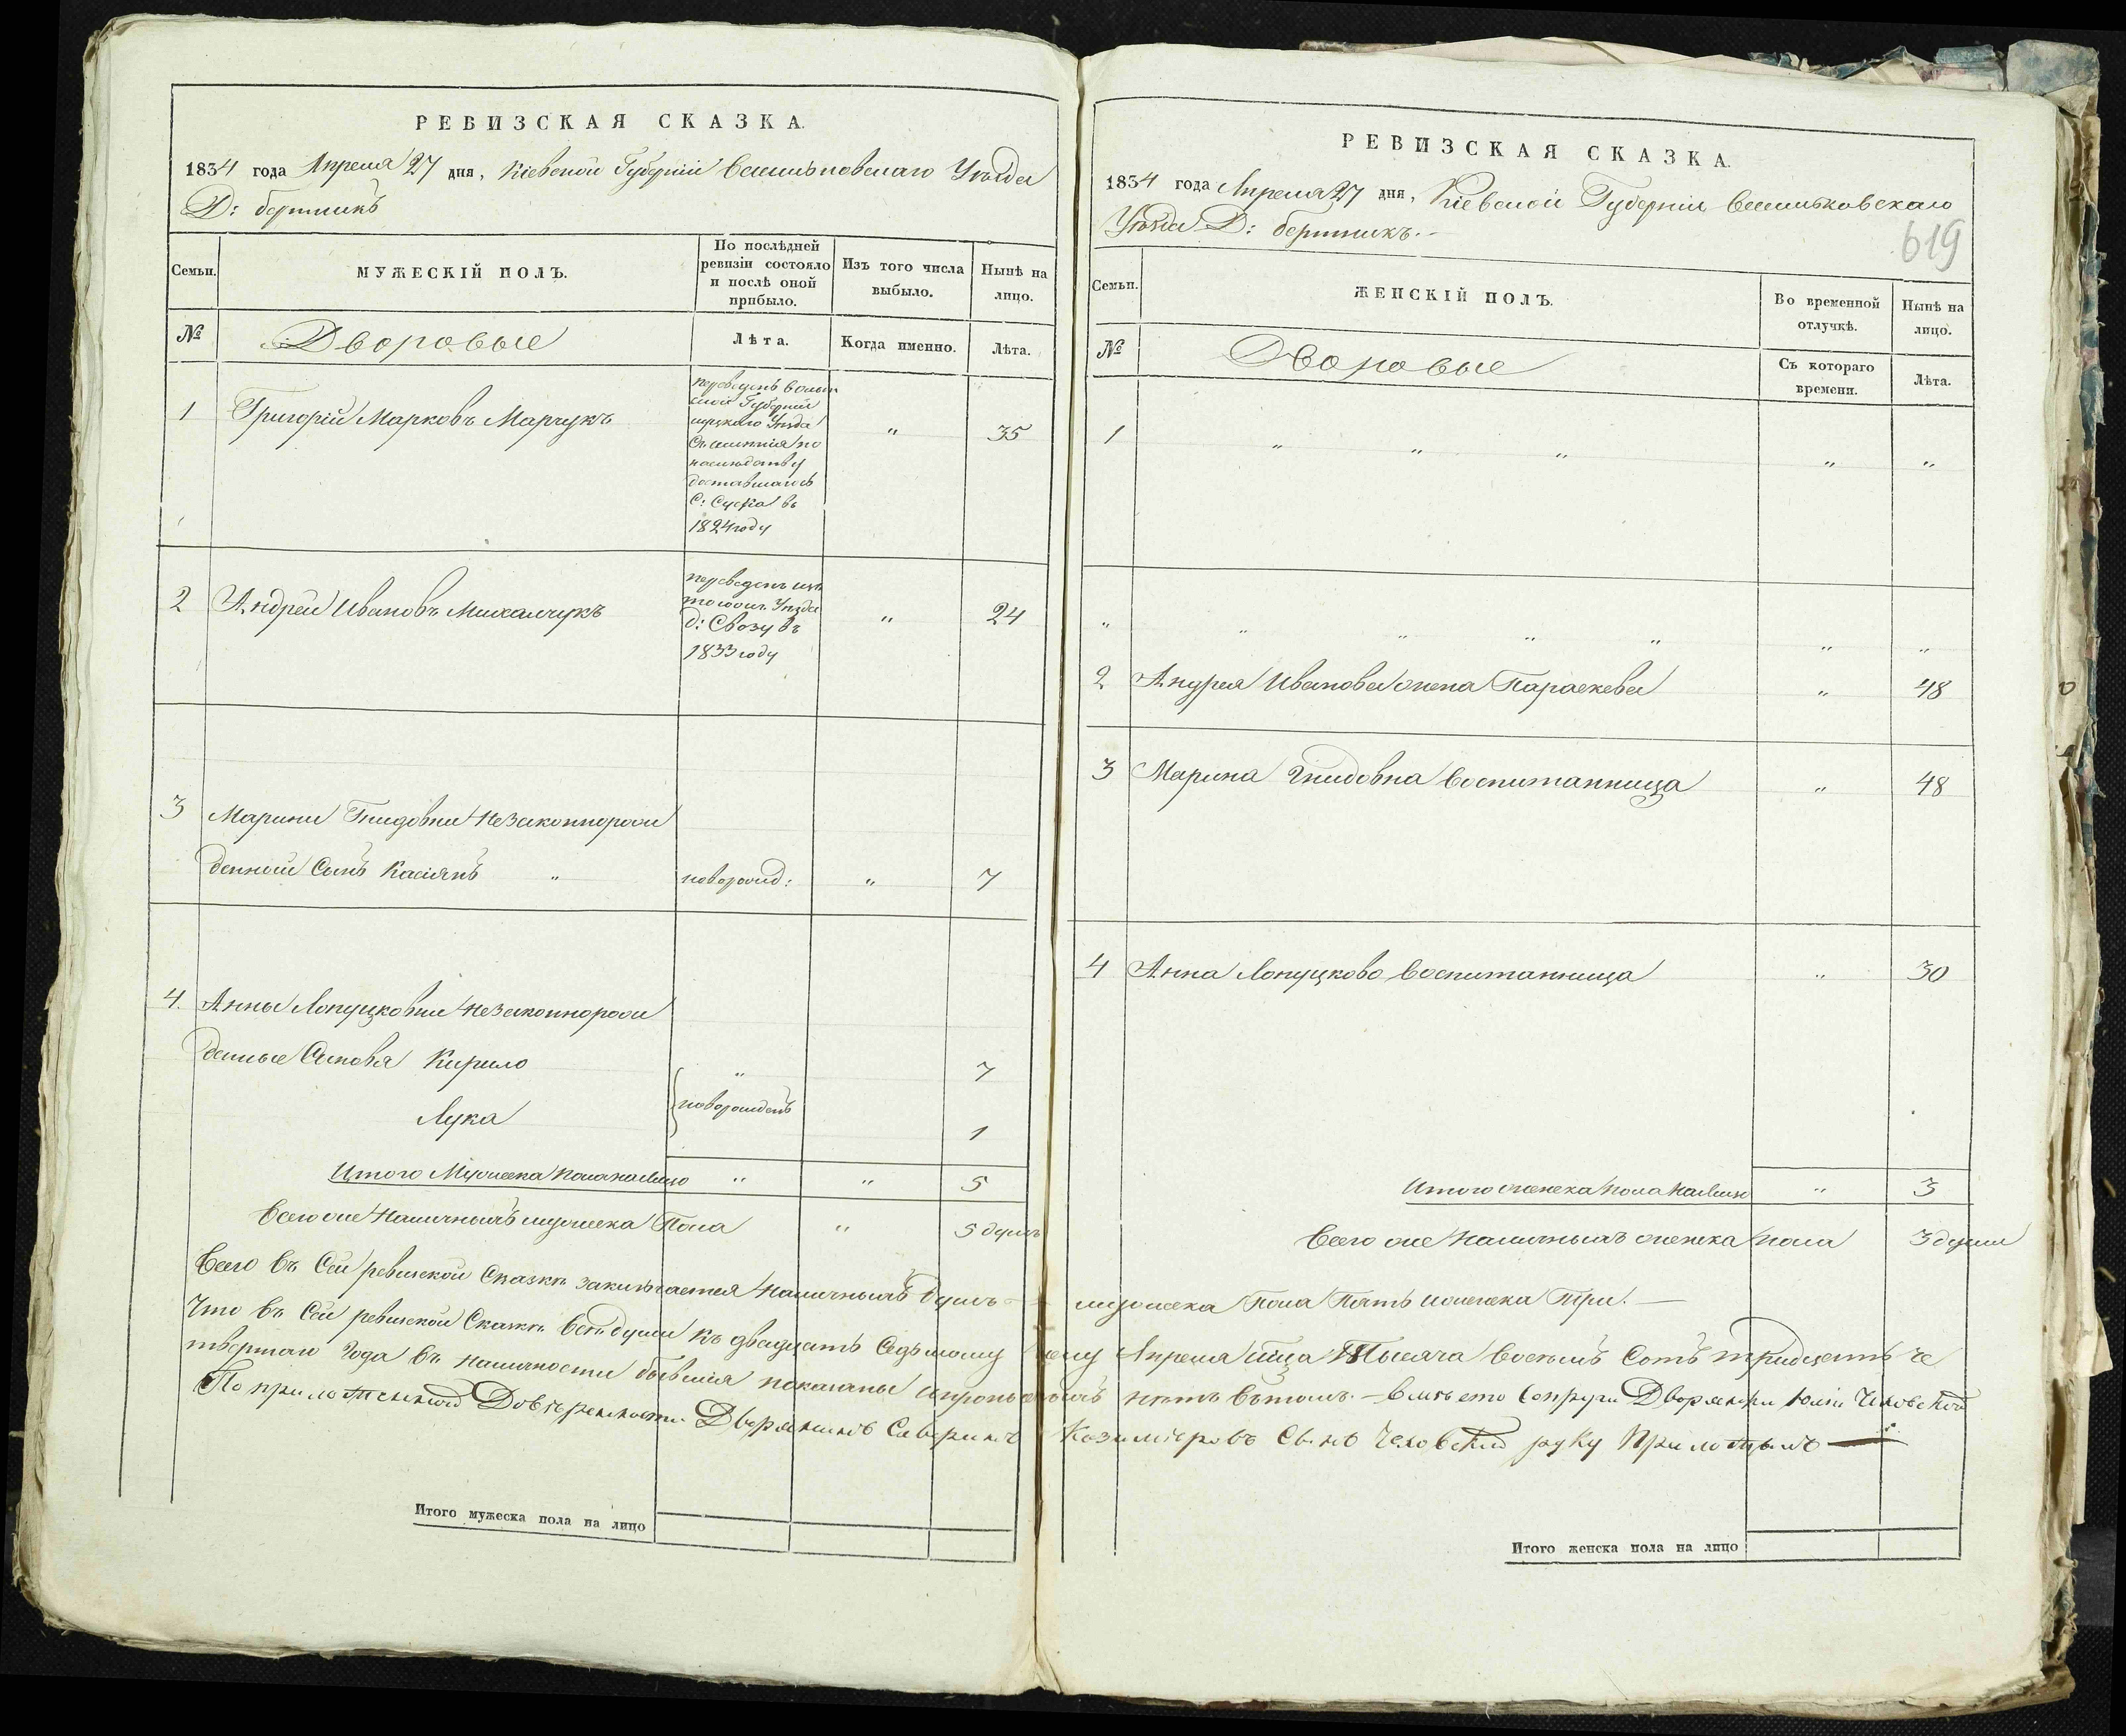 РЕВИЗСКАЯ СКАЗКА.
1834 года Апреля 27 дня, Кіевской Губерніи Васильковскаго Уѣзда
Д: бертникъ
Семьи.
МУЖЕСКІЙ ПОЛЪ.
По послѣдней
ревизіи состояло
и послѣ оной
прибыло.
Изъ того числа
выбыло.
Нынѣ на
лицо.
№
Дворовые
Лѣта.
Когда именно.
Лѣта.
1 Григорій Марковъ Марчукъ
переведенъ волын
ской Губерніи
луцкого Уѣзда
съ имѣнія по
наслѣдству
доставшагось
С: Суска въ
1824 году
" 35
2 Андрей Ивановъ Михальчукъ
переведенъ изъ
тогож Уѣзда
д: Свозу въ
1833 году
" 24
3 Марини Гнидовни Незаконнорож
денной Сынъ Касіянъ " новорожд: " 7
4. Анны Лопуцковни Незаконнорож
денные Синовя Кирило " 7
новорожденъ
Лука 1
Итого Мужеска пола на лицо " " 5
Всего же Наличныхъ мужеска Пола " 5 душъ
РЕВИЗСКАЯ СКАЗКА.
1834 года Апреля 27 дня, Кіевской Губерніи Васильковскаго
Уѣзда Д: бертникъ.
619
Семьи.
ЖЕНСКІЙ ПОЛЪ.
Во временной
отлучкѣ.
Нынѣ на
лицо.
№
Дворовые
Съ котораго
времени.
Лѣта.
1 " " " " "
" " " " " " "
2 Андрея Иванова жена Параскева " 48
3 Марина Гнидовна Воспитанница " 48
4 Анна Лопуцково Воспитанница " 30
Итого женска пола на лицо " 3
Всего же Наличныхъ женска пола 3 души
Всего въ Сей ревизской Сказкѣ заключается Наличныхъ душъ мужеска Пола Пять и женска Три. —
Что въ Сей ревизской Сказкѣ Всѣ души къ двадцать Седьмому Апреля Тысяча Восемь Сотъ тридцять че
твертого года въ наличности бывшія показаны и прописныхъ нетъ въ томъ. — Вместо Дворянки Юліи Чиховской
По приложенной Довѣренности Дворянинъ Северинъ Казимѣровъ Сынъ Чеховскій руку Приложилъ —
Итого мужеска пола на лицо
Итого женска пола на лицо